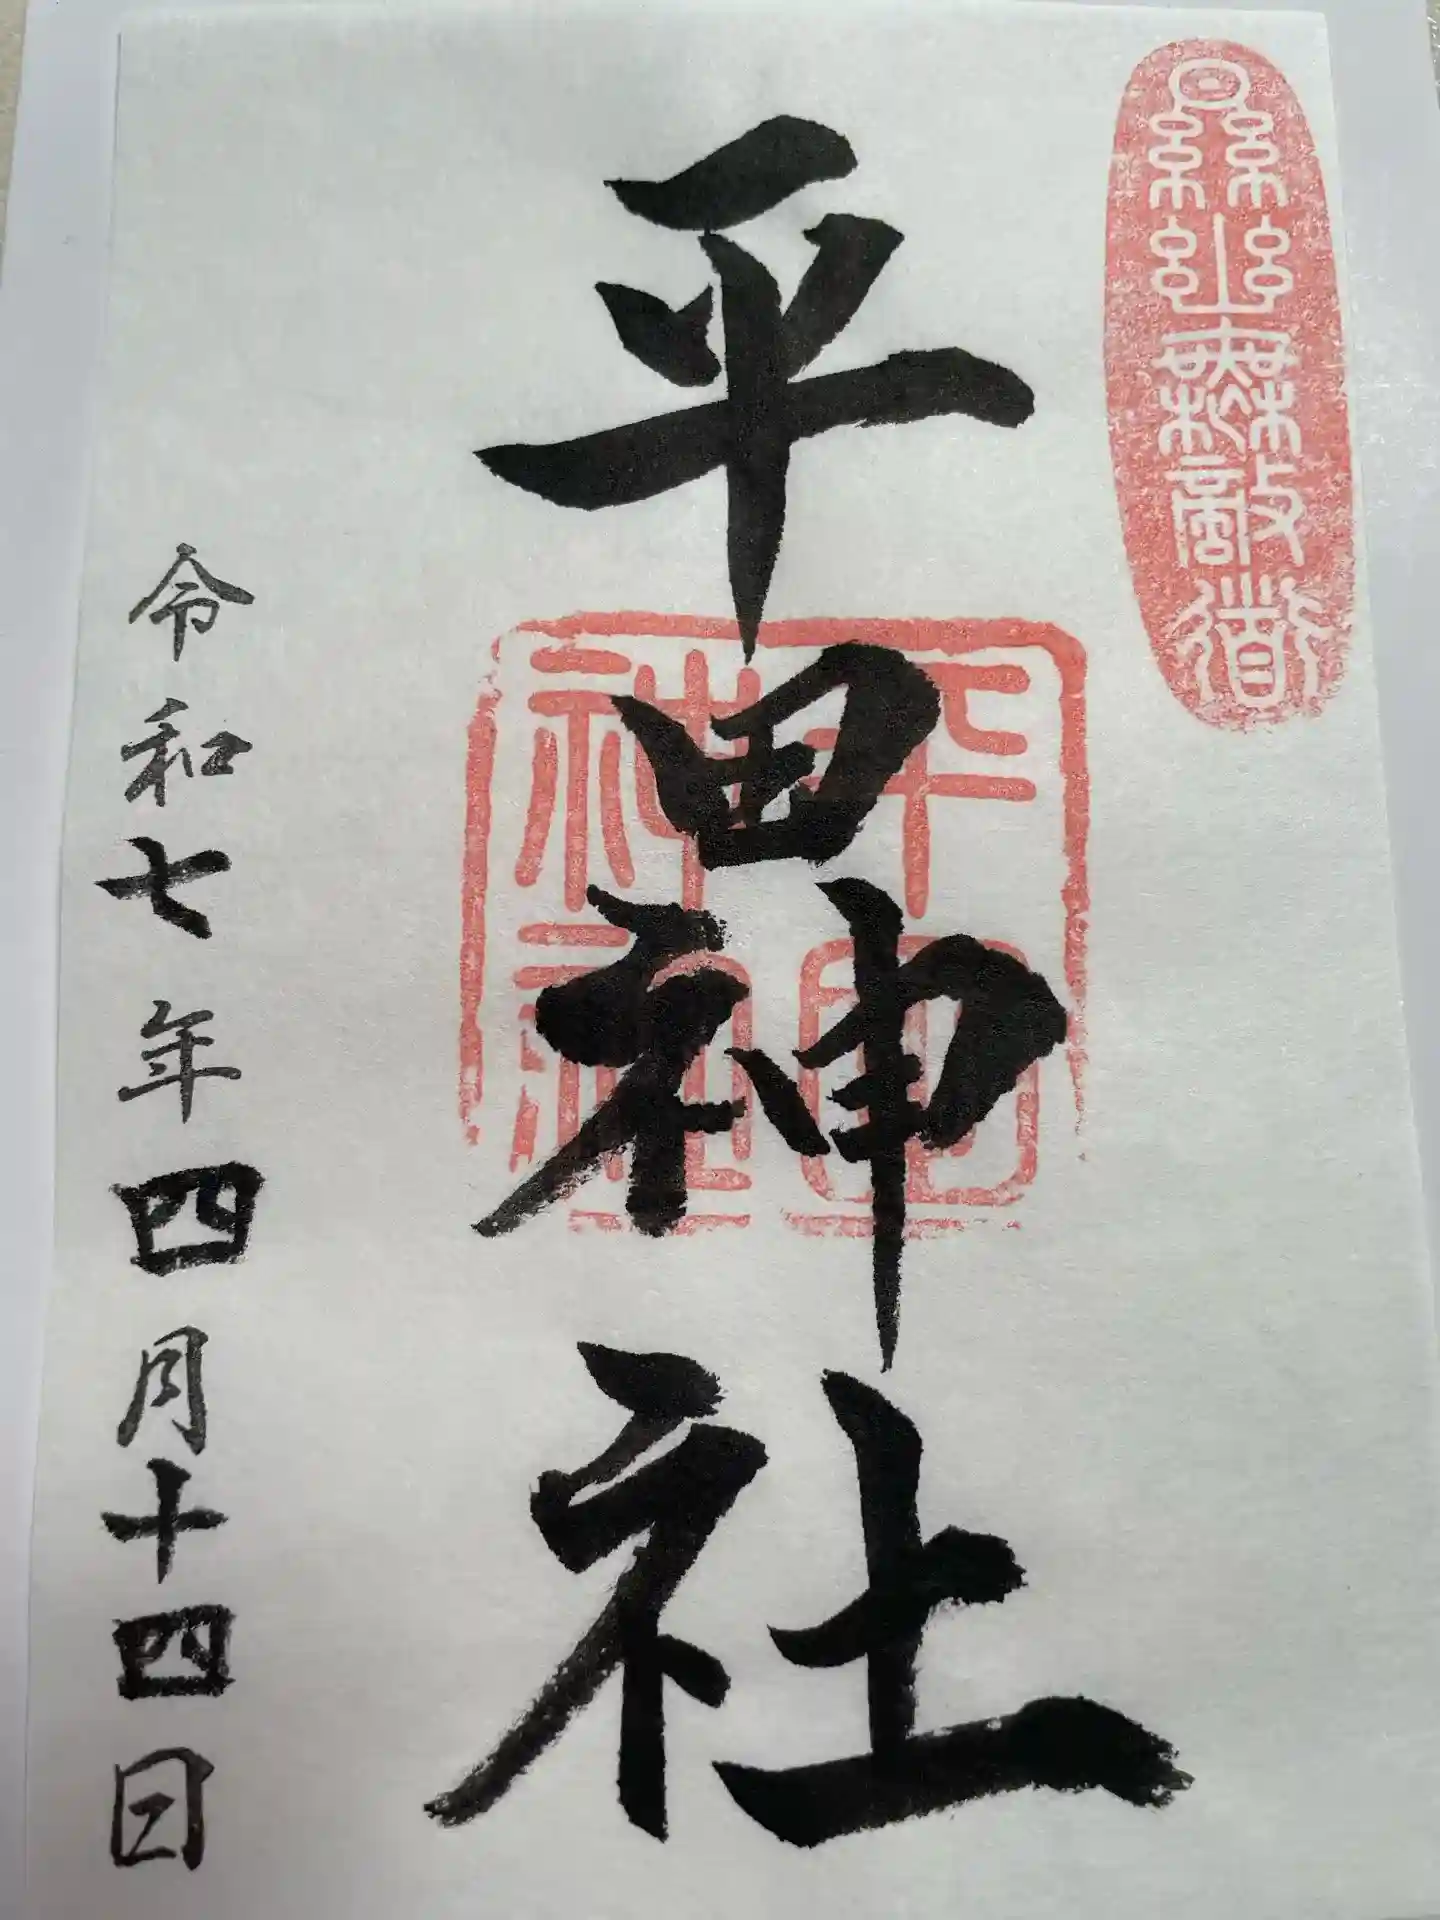 平田神社
平田
神社
令和七年四月十四日